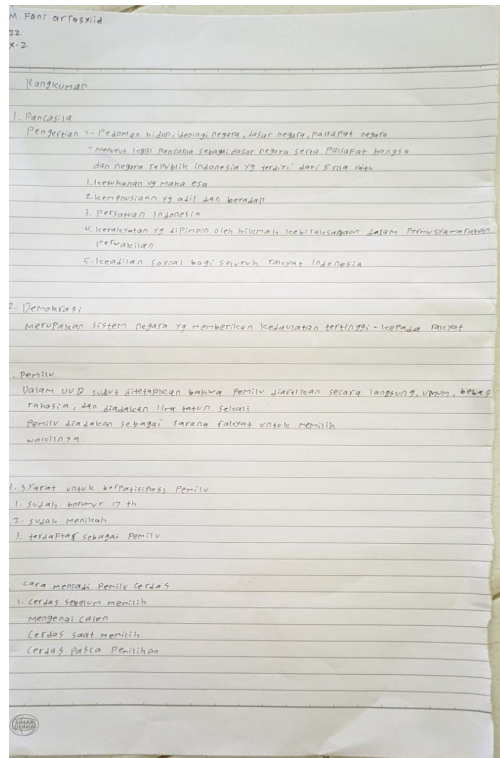 M. Fani arrasyiid
22
X-2
Rangkuman
1. Pancasila
Pengertian :- Pedoman hidup, ideologi negara, dasar negara, falsafat negara
- Menurut Pancasila sebagai dasar negara serta falsafat bangsa
dan negara republik indonesia yg terdiri dari 5 sila yaitu
1. ketuhanan yg maha esa
2. kemanusiaan yg adil dan beradap
3. persatuan Indonesia
4. kerakyatan yg dipimpin oleh hikmah kebijaksanaan dalam permusyawaratan
perwakilan
5. keadilan sosial bagi seluruh rakyat indonesia
2. Demokrasi
merupakan sistem negara yg memberikan kedaulatan tertinggi - kepada rakyat
. Pemilu
Dalam UUD sudut ditetapkan bahwa pemilu diartikan secara langsung, umum, bebas
rahasia, dan diadakan lima tahun sekali
Pemilu diadakan sebagai sarana rakyat untuk memilih
wakilnya.
1. syarat untuk berpatisipasi pemilu
1. sudah berumur 17 th
2. sudah menikah
3. terdaftar sebagai pemilu
cara menjadi pemilu cerdas
1. cerdas sebelum memilih
mengenai calen
cerdas saat memilih
cerdas pasca pemilihan
SINAR DUNIA